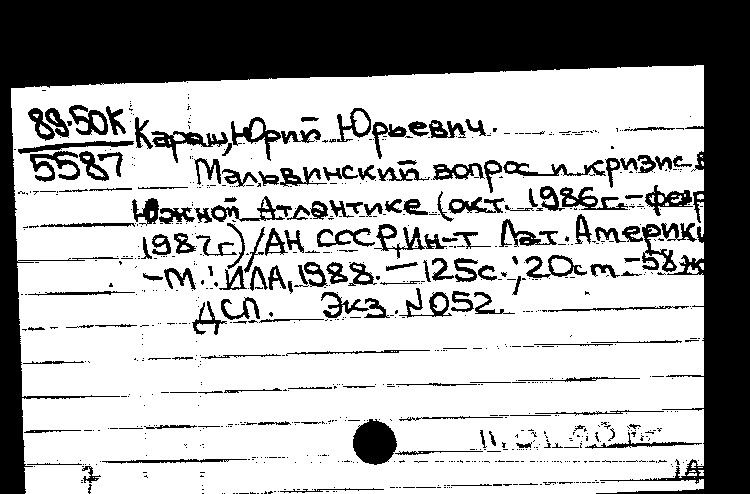 89-50К
5587
Караш, Юрий Юрьевич.
Мальвинский вопрос и кризис в
Южной Атлантике (окт. 1986г.-февр
1987г)/АН СССР, Ин-т Лат. Америки
-М.: ИЛА, 1988. - 125с.; 20см -58ж
ДСП. Экз. N052.
11.01.90
7
1А